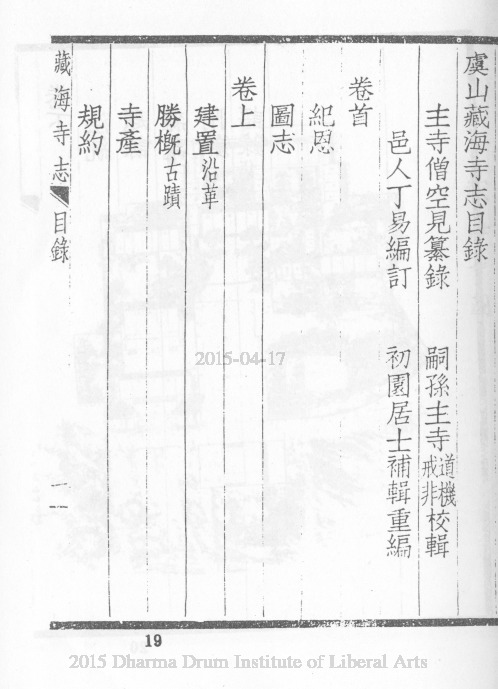 虞山藏海寺志目錄
主寺僧空見纂錄 嗣孫主寺道機戒非校輯
邑人丁易編訂 初園居士補輯重編
卷首
紀恩
圖志
卷上
建置沿革
勝概古蹟
寺產
規約
藏海寺志 目錄 一
19
2015-04-17
2015 Dharma Drum Institute of Liberal Arts